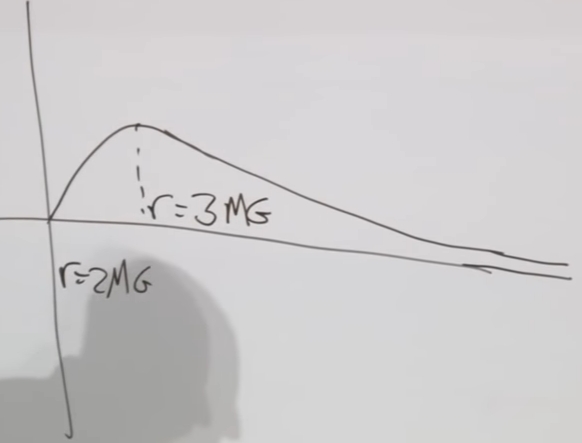 r=3MG
r=2MG